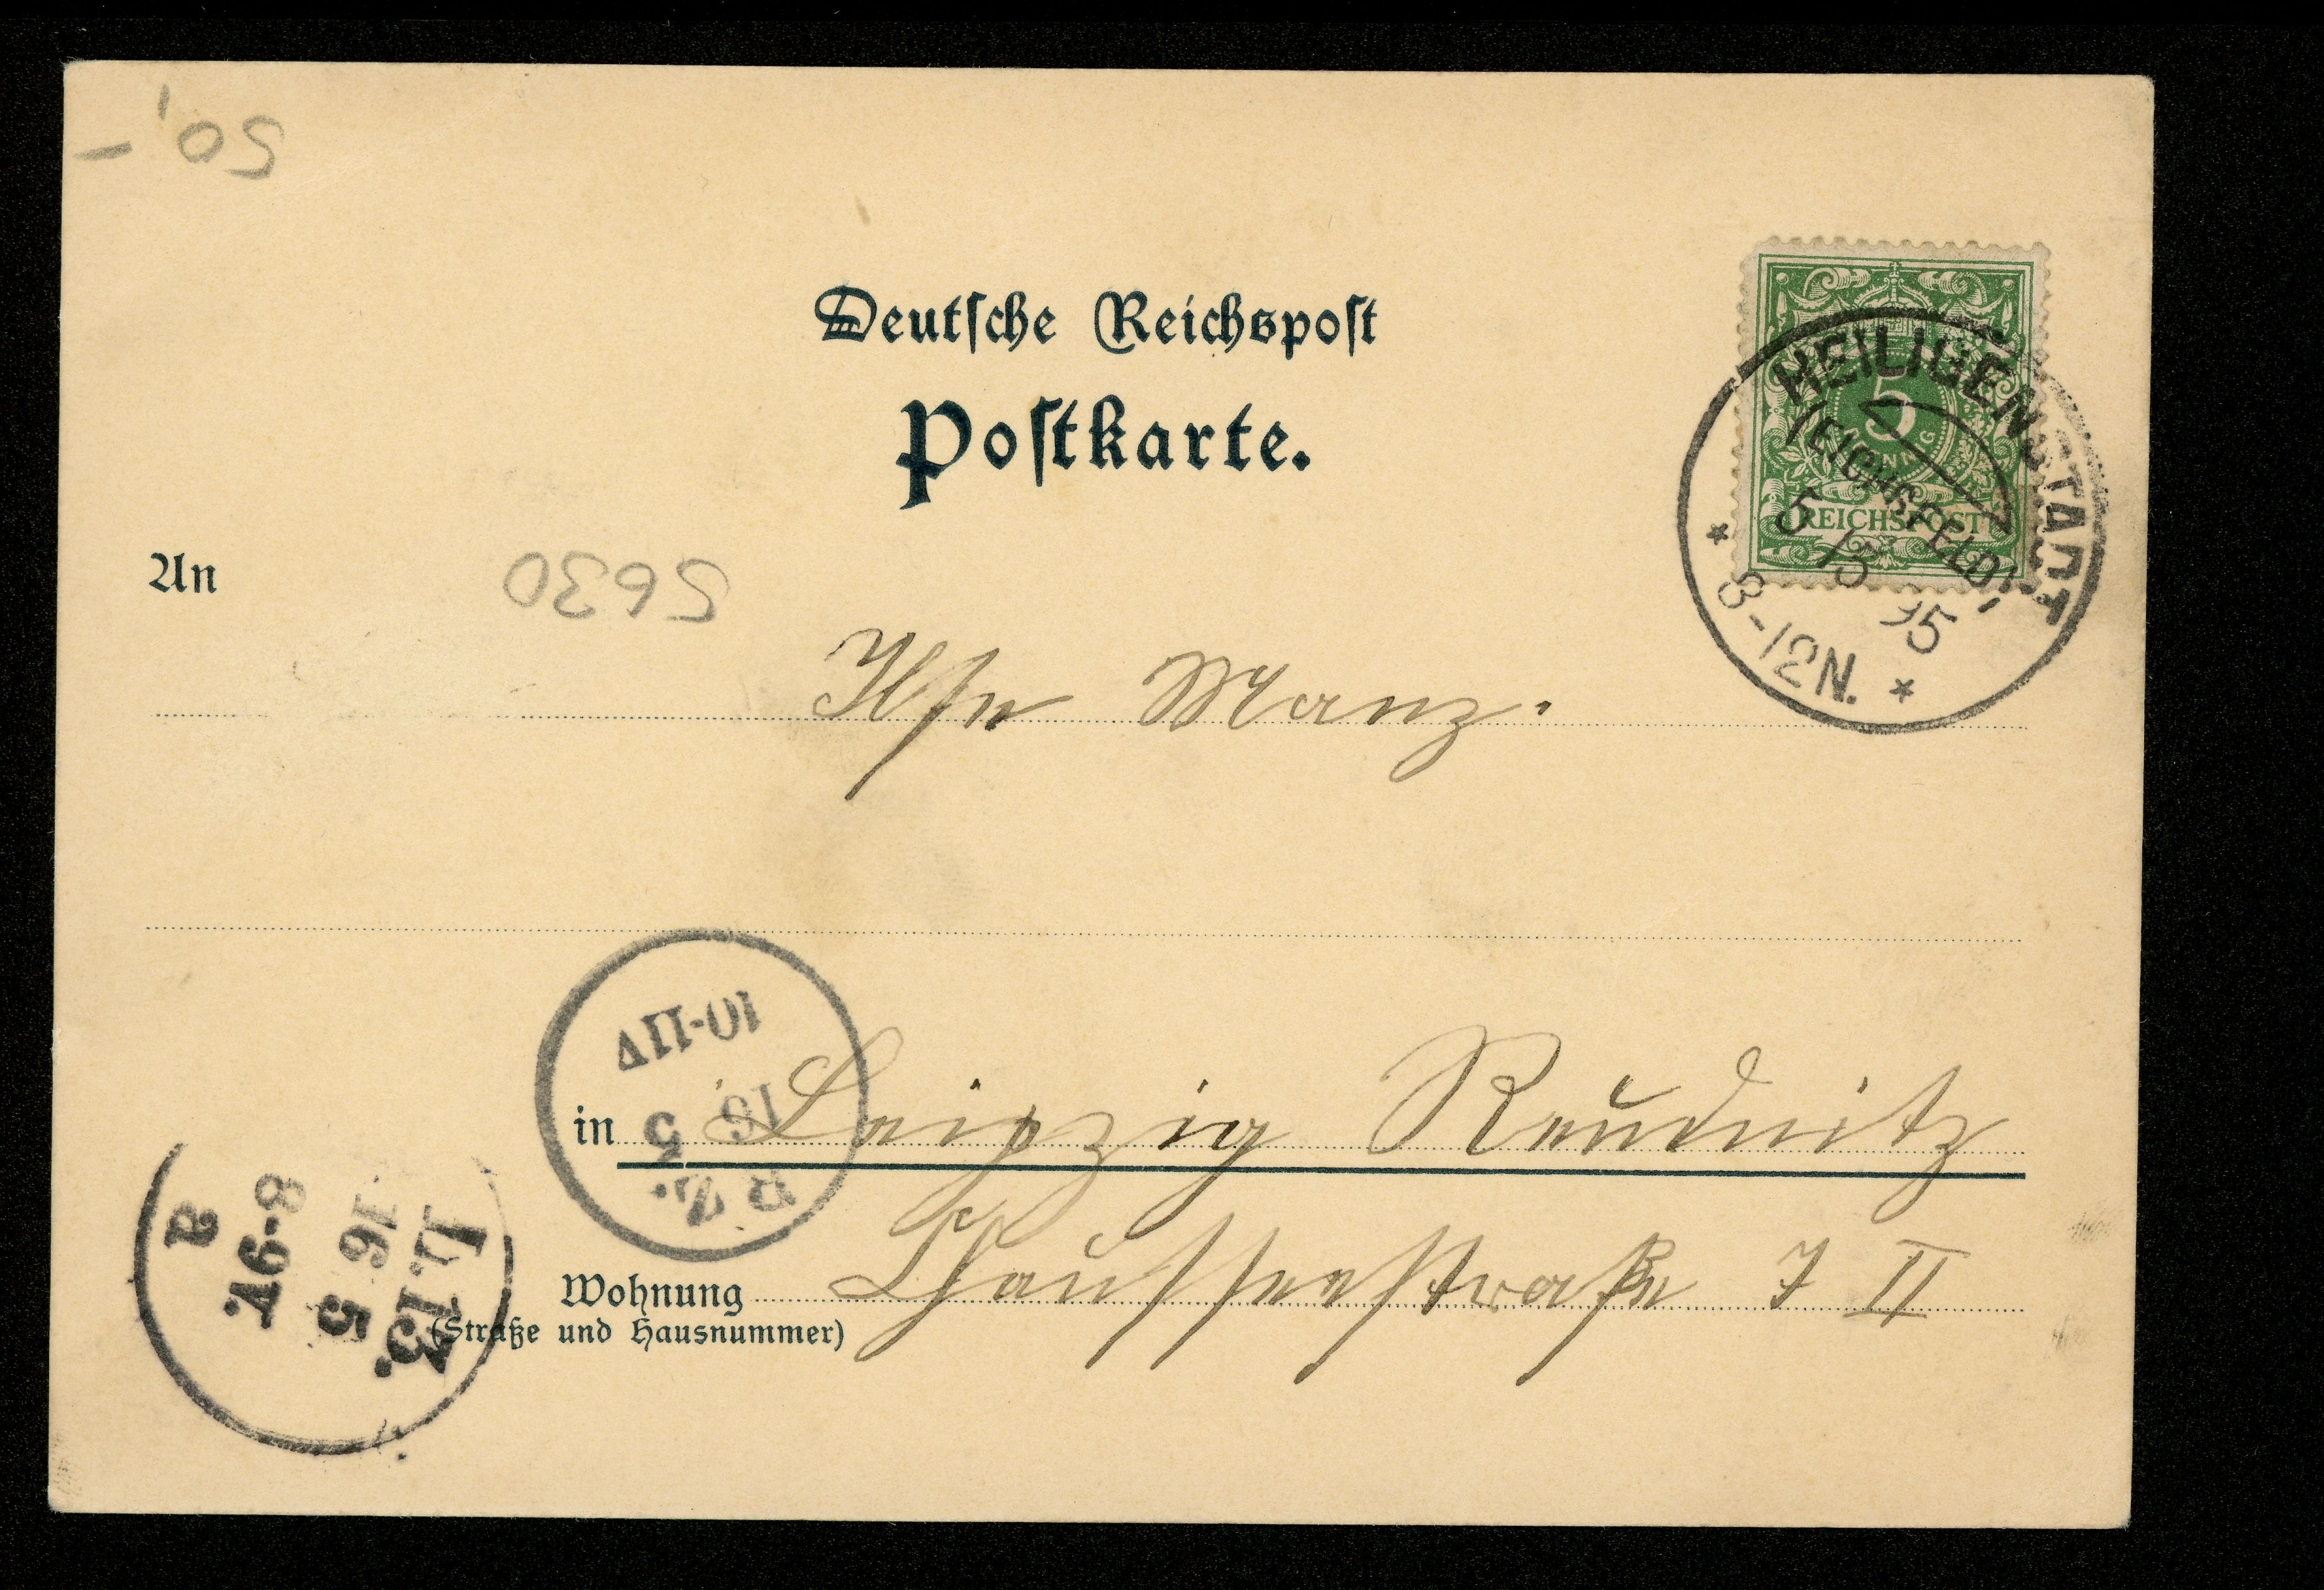 50,-
Deutsche Reichspost
Postkarte.
5
REICHSPOST
HEILIGENSTADT
(EICHSFELD)
15 5 95
8-12N.
An
5630
Manz.
10-11V
16 5
in Leipzig Reudnitz
L.B.
16 5
8-9V.
a
Wohnung Chausseestraße 7 II
(Straße und Hausnummer)